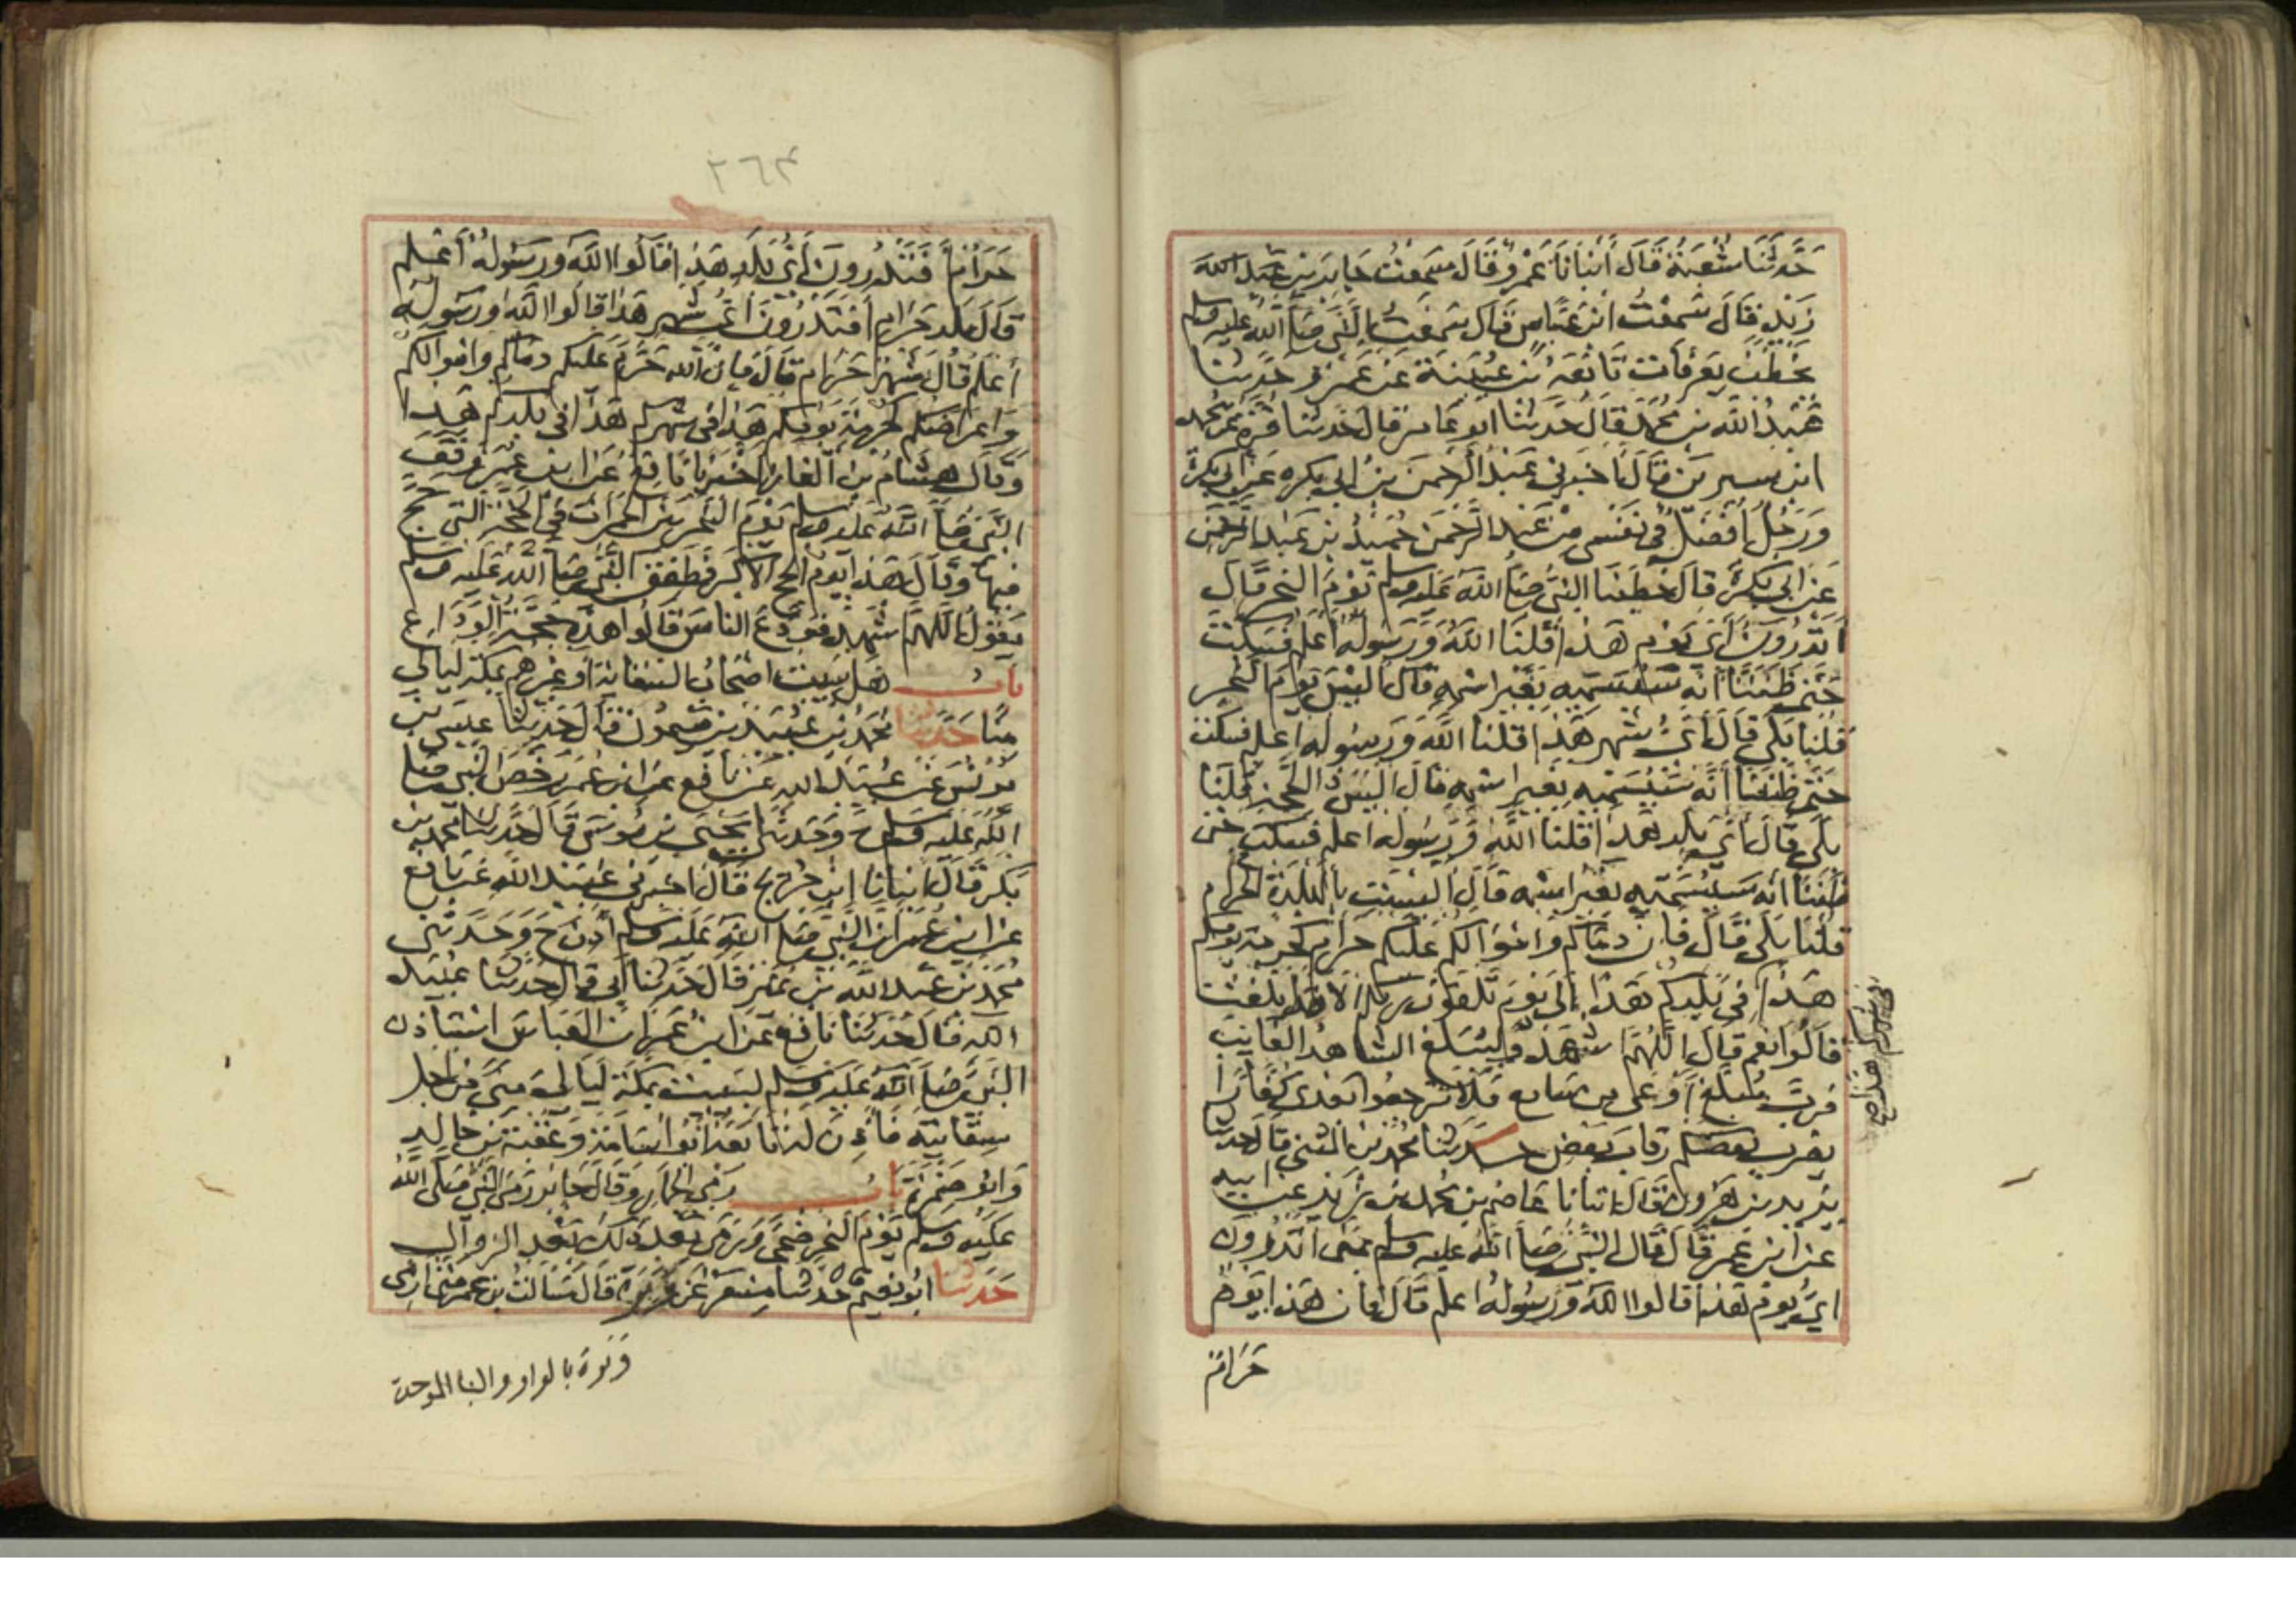 حَدَّثَنَا شُعْبَةُ قَالَ أَنْبَانَا عَمْرٌو قَالَ سَمِعْتُ جَابِرَ بْنَ عَبْدِ اللَّه
زَيْدٍ قَالَ سَمِعْتُ ابْنَ عَبَّاسٍ قَالَ سَمِعْتُ النَّبِيَّ صَلَّى اللَّهُ عَلَيْهِ وَسَلَّم
يَخْطُبُ بِعَرَفَاتٍ تَابَعَهُ بْن عُيَيْنَةَ عَنْ عَمْرٍو حَدَّثَنَا
عَبْدُ اللَّهِ بن مُحَمَّد قَالَ حَدَّثَنَا ابو عَامِر قَالَ حَدَّثَنَا قُرَّة عَنْ مُحَمَّد
ابن سيرين قَالَ اخْبَرني عَبْدُ الرَّحْمَن بنُ ابي بكره عَنْ ابي بَكْرَةَ
وَرَجُلٌ أَفْضَلُ فِي نَفْسِي مِنْ عَبْدِ الرَّحْمَن حُمَيْدُ بْن عَبْدِ الرَّحْمَن
عَنْ ابي بَكْرَةَ قَالَ خَطَبَنَا النَّبِيُّ صَلَّى اللَّهُ عَلَيْهِ وَسَلَّم يَوْمَ النَّحْرِ قَالَ
أَتَدْرُونَ أَيُّ يَوْمٍ هَذَا قُلْنَا اللَّهُ وَرَسُولُهُ أَعْلَمُ فَسَكَتَ
حَتَّى ظَنَنَّا أَنَّهُ سَيُسَمِّيهِ بِغَيْرِ اسْمِهِ قَالَ أَلَيْسَ يَوْمَ النَّحْرِ
قُلْنَا بَلَى قَالَ أَيُّ شَهْرٍ هَذَا قُلْنَا اللَّهُ وَرَسُولُه اعلم فسكت
حَتَّى ظَنَنَّا أَنَّهُ سَيُسَمِّيهِ بِغَيْرِ اسْمِهِ قَالَ أَلَيْسَ ذَا الْحَجَّةِ قُلْنَا
بَلَى قَالَ أَيُّ بَلَدٍ هَذَا قُلْنَا اللَّهُ وَرَسُولُه اعلم فَسَكَتَ حَتَّى
ظَنَنَّا أَنَّهُ سَيُسَمِّيهِ بِغَيْرِ اسْمِهِ قَالَ أَلَيْسَتْ بِالْبَلْدَةِ الْحَرَام
قُلْنَا بَلَى قَالَ فَإِنَّ دِمَاكم وَامْوَالكم عَلَيْكُم حَرَام كَحُرْمَة يَوْمِكُم
هَذَا فِي بَلَدِكُم هَذَا إِلَى يَوْمِ تَلْقَوْنَ رَبَّكُم أَلَا هَلْ بَلَّغْتُ
في شهركم هذا صح
قَالُوا نَعَم قَالَ اللَّهُمَّ اشْهَدْ فَلْيُبَلِّغ الشَّاهِدُ الْغَايِبَ
فَرُبَّ مُبَلَّغٍ أَوْعَى مِن سَامِع فَلَا تَرْجِعُوا بَعْدِي كُفَّارًا
يَضْرِبُ بَعْضُكُم رِقَابَ بَعْضٍ حَدَّثَنَا مُحَمَّد بن الْمُثَنَّى قَالَ حَدَّثَنَا
يَزِيد بن هَرُونَ قَالَ انْبَانَا عَاصِمُ بن مُحَمَّد بن زَيْد عَنْ ابيه
عَنْ ابْنِ عُمَر قَالَ قَالَ النَّبِيُّ صَلَّى اللَّهُ عَلَيْهِ وَسَلَّم بِمِنًى أَتَدْرُونَ
ايُّ يَوْم هَذَا قَالُوا اللَّهُ وَرَسُولُهُ اعلم قَالَ فَان هَذَا يَوْمٌ
حَرَامٌ
٢٦٣
حَرَامٌ أَفَتَدْرُونَ أَيُّ بَلَدٍ هَذَا قَالُوا اللَّهُ وَرَسُولُهُ أَعْلَم
قَالَ بَلَد حَرَام أَفَتَدْرُونَ أَيُّ شَهْر هَذَا قَالُوا اللَّهُ وَرَسُولُه
أَعْلَم قَالَ شَهْر حَرَام قَالَ فَإِنَّ اللَّه حَرَّمَ عَلَيْكُم دِمَاكم وامْوَالكم
وَاعْرَاضكم كَحُرْمَةِ يَوْمِكُم هَذَا فِي شَهْرِكُم هَذَا فِي بَلَدِكُم هَذَا
وَقَالَ هِشَامُ بن الْغَازِ اخْبَرَنَا نَافِعٌ عَن ابن عُمَرَ وَقَفَ
النَّبِيُّ صَلَّى اللَّهُ عَلَيْهِ وَسَلَّم يَوْمَ النَّحْرِ بَيْنَ الْجَمَرَاتِ فِي الْحَجَّةِ الَّتِي حَجَّ
فِيهَا وَقَالَ هَذَا يَوْمُ الْحَجِّ الْأَكْبَر فَطَفِقَ النَّبِيُّ صَلَّى اللَّهُ عَلَيْهِ وَسَلَّم
يَقُولُ اللَّهُمَّ اشْهَدْ فَوَدَّعَ النَّاسَ فَقَالُوا هَذِهِ حَجَّةُ الْوَدَاعِ
بَابُ هَل يَبِيتُ اصْحَابُ السِّقَايَةِ أَوْ غَيْرُهُم بِمَكَّةَ لَيَالِيَ
مِنًا حَدَّثَنَا مُحَمَّدُ بْنُ عُبَيْد بن مَيْمُون قَالَ حَدَّثَنَا عِيسَى بن
يُونُسَ عَنْ عُبَيْدِ اللَّهِ عَنْ نَافِع عن ابن عُمَر رَخَّصَ النَّبِيُّ صَلَّى
اللَّهُ عَلَيْهِ وَسَلَّم ح وَحَدَّثَنَا يَحْيَى بن مُوسَى قَالَ حَدَّثَنَا مُحَمَّد بن
بَكْر قَالَ انْبَانَا ابن جُرَيْجٍ قَالَ اخْبَرَنِي عُبَيْدُ اللَّه عَنْ نَافِع
عَن ابن عُمَرَ أَنَّ النَّبِيَّ صَلَّى اللَّهُ عَلَيْهِ وَسَلَّم أَذِنَ ح وَحَدَّثَنِي
مُحَمَّد بن عَبْدِ اللَّه بْن نُمَيْرٍ قَالَ حَدَّثَنَا أَبِي قَالَ حَدَّثَنَا عُبَيْد
اللَّه قَالَ حَدَّثَنَا نَافِع عَن ابْن عُمَرَ أَنَّ الْعَبَّاسَ اسْتَأْذَنَ
النَّبِيَّ صَلَّى اللَّهُ عَلَيْهِ وَسَلَّم لِيَبِيتَ بِمَكَّةَ لَيَالِيَ مِنًى مِنْ اجْلِ
سِقَايَتِهِ فَأَذِنَ لَهُ تَابَعَهُ أَبُو اسَامَة وَعُقْبَة بن خَالِدٍ
وَابُو ضَمْرَةَ بَابُ رَمْيِ الْجِمَارِ وَقَالَ جَابِرٌ رَمَى النَّبِيُّ صَلَّى اللَّهُ
عَلَيْهِ وَسَلَّم يَوْمَ النَّحْرِ ضُحًى وَرَمَى بَعْدَ ذَلِكَ بَعْدَ الزَّوَال
حَدَّثَنَا ابُو نُعَيْمٍ حَدَّثَنَا مِسْعَرٌ عَنْ وَبَرَةَ قَالَ سَأَلْتُ بن عمر مَتَى ارمي
وبرة بالواو والبا الموحدة